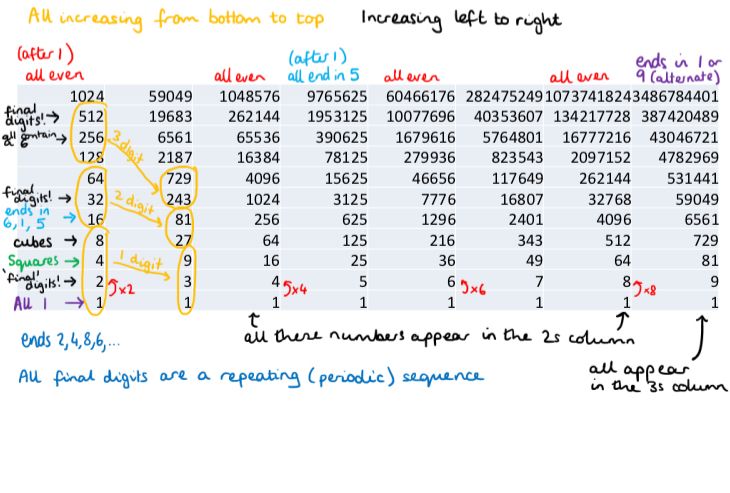 All increasing from bottom to top Increasing left to right
(after 1) (after 1) ends in 1 or
all even all even all end in 5 all even all even 9 (alternate)
1024 59049 1048576 9765625 60466176 282475249 1073741824 3486784401
final digits! → 512 19683 262144 1953125 10077696 40353607 134217728 387420489
all contain 6 → 256 3 digit 6561 65536 390625 1679616 5764801 16777216 43046721
128 2187 16384 78125 279936 823543 2097152 4782969
64 729 4096 15625 46656 117649 262144 531441
final digits! → 32 2 digit 243 1024 3125 7776 16807 32768 59049
ends in 6,1,5 → 16 81 256 625 1296 2401 4096 6561
cubes → 8 27 64 125 216 343 512 729
Squares → 4 1 digit 9 16 25 36 49 64 81
'final' digits! → 2 x2 3 4 x4 5 6 x6 7 8 x8 9
All 1 → 1 1 1 1 1 1 1 1
ends 2,4,8,6,... all these numbers appear in the 2s column
All final digits are a repeating (periodic) sequence all appear
in the 3s column